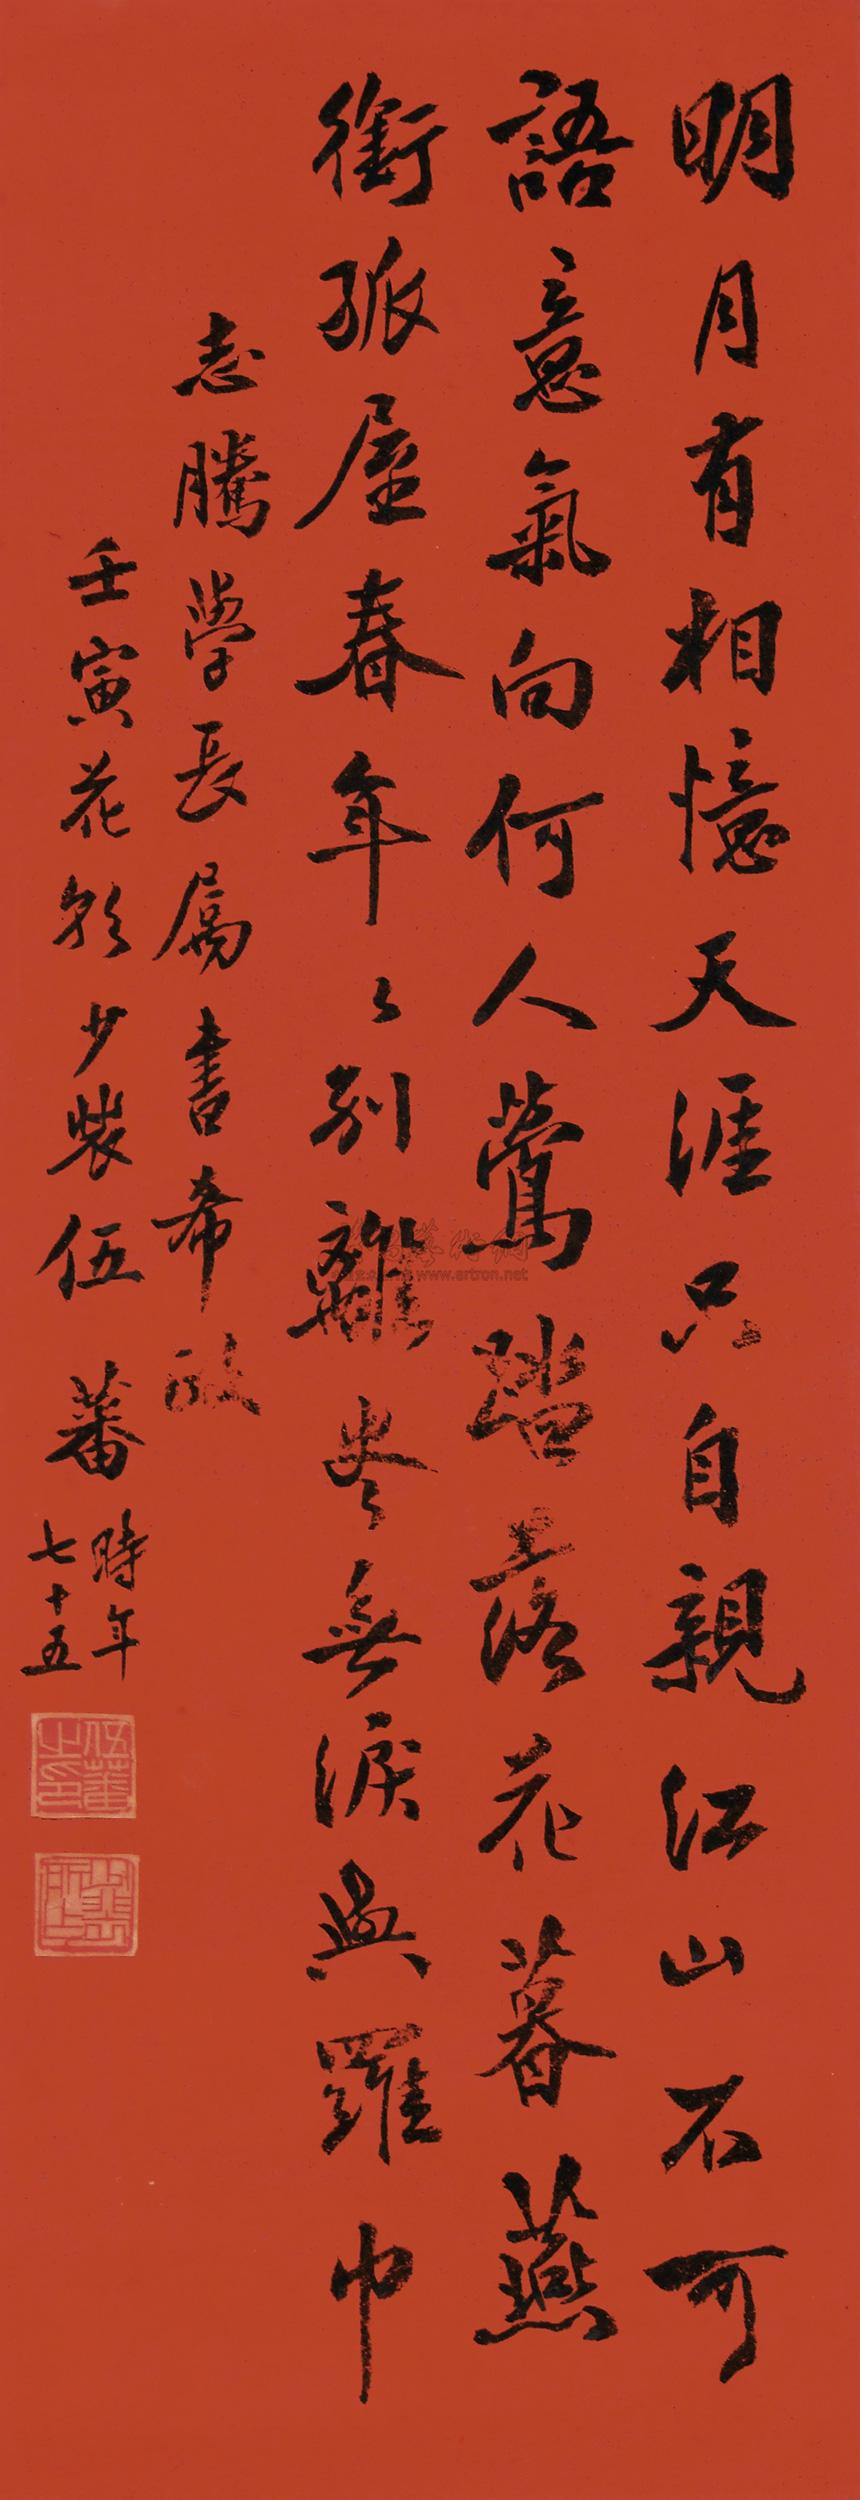 明月有相憶天涯只自親江山不可
語意氣向何人鶯踏落花暮燕
銜孤屋春年〻別離棄無淚與羅巾
志騰學長屬書希政
壬寅花朝少裝伍蕃
時年
七十五
伍蕃之印